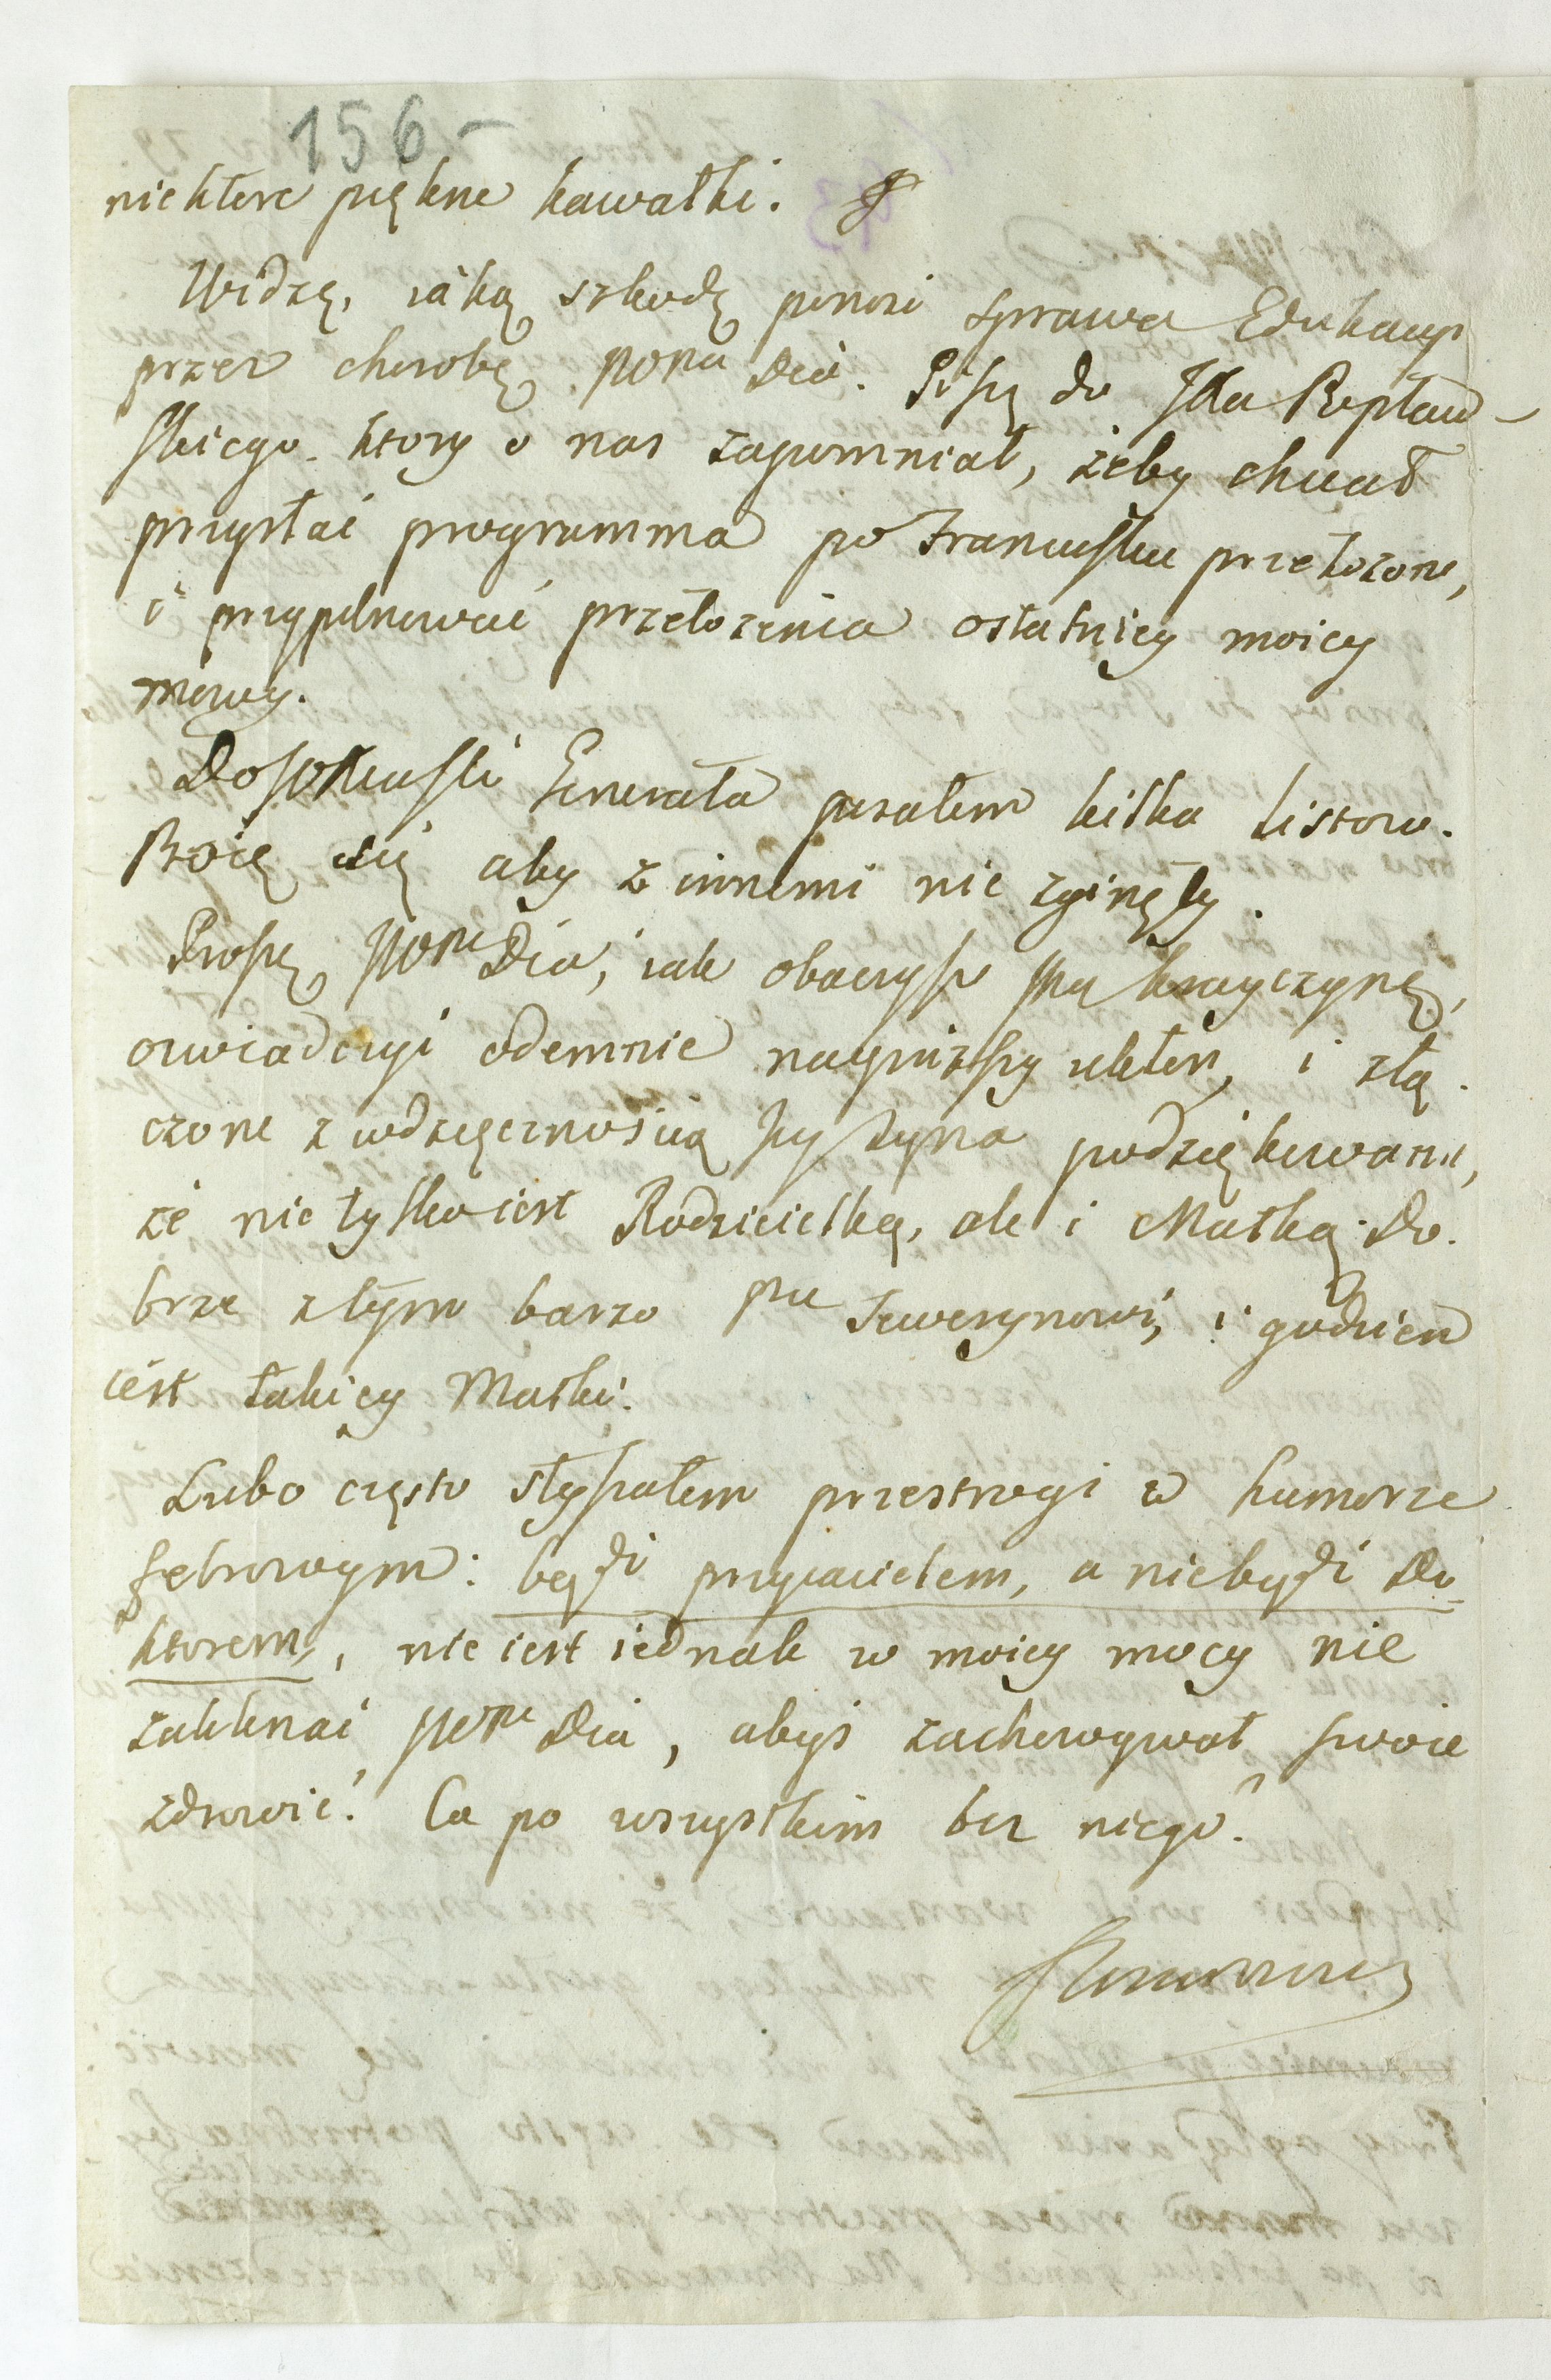 156-
niektore piękne kawałki.
Widzę, iaką szkodę ponosi sprawa Edukacyi
przez chorobę WPana Dia. Piszę do JXa Popław-
skiego. ktory o nas zapomniał, żeby chciał
przysłać programma po Francusku przełozone,
i przypilnować przełozenia ostatnięy moięy
mowy.
Do Generała pisałem kilka listow.
Boię się aby z innemi nie zginęły.
Proszę WPana Dia, iak obaczysz Krayczynę,
oswiadczyć odemnie nayniższy ukłon, i złą
czone z wdzięcznością Syna podziękowanie,
że nie tylko iest Rodzicielką, ale i Matką. Do
brze z tym barzo Panu Sewerynowi, i godzien
iest takięy Matki.
Lubo często słyszałem przestrogi w humorze
febrowym: bądź przyiacielem, a niebądź Do-
ktorem, nie iest iednak w moięy mocy nie
zaklinać WPana Dia, abyś zachowywał swoie
zdrowie. Co po wszystkim bez niego?